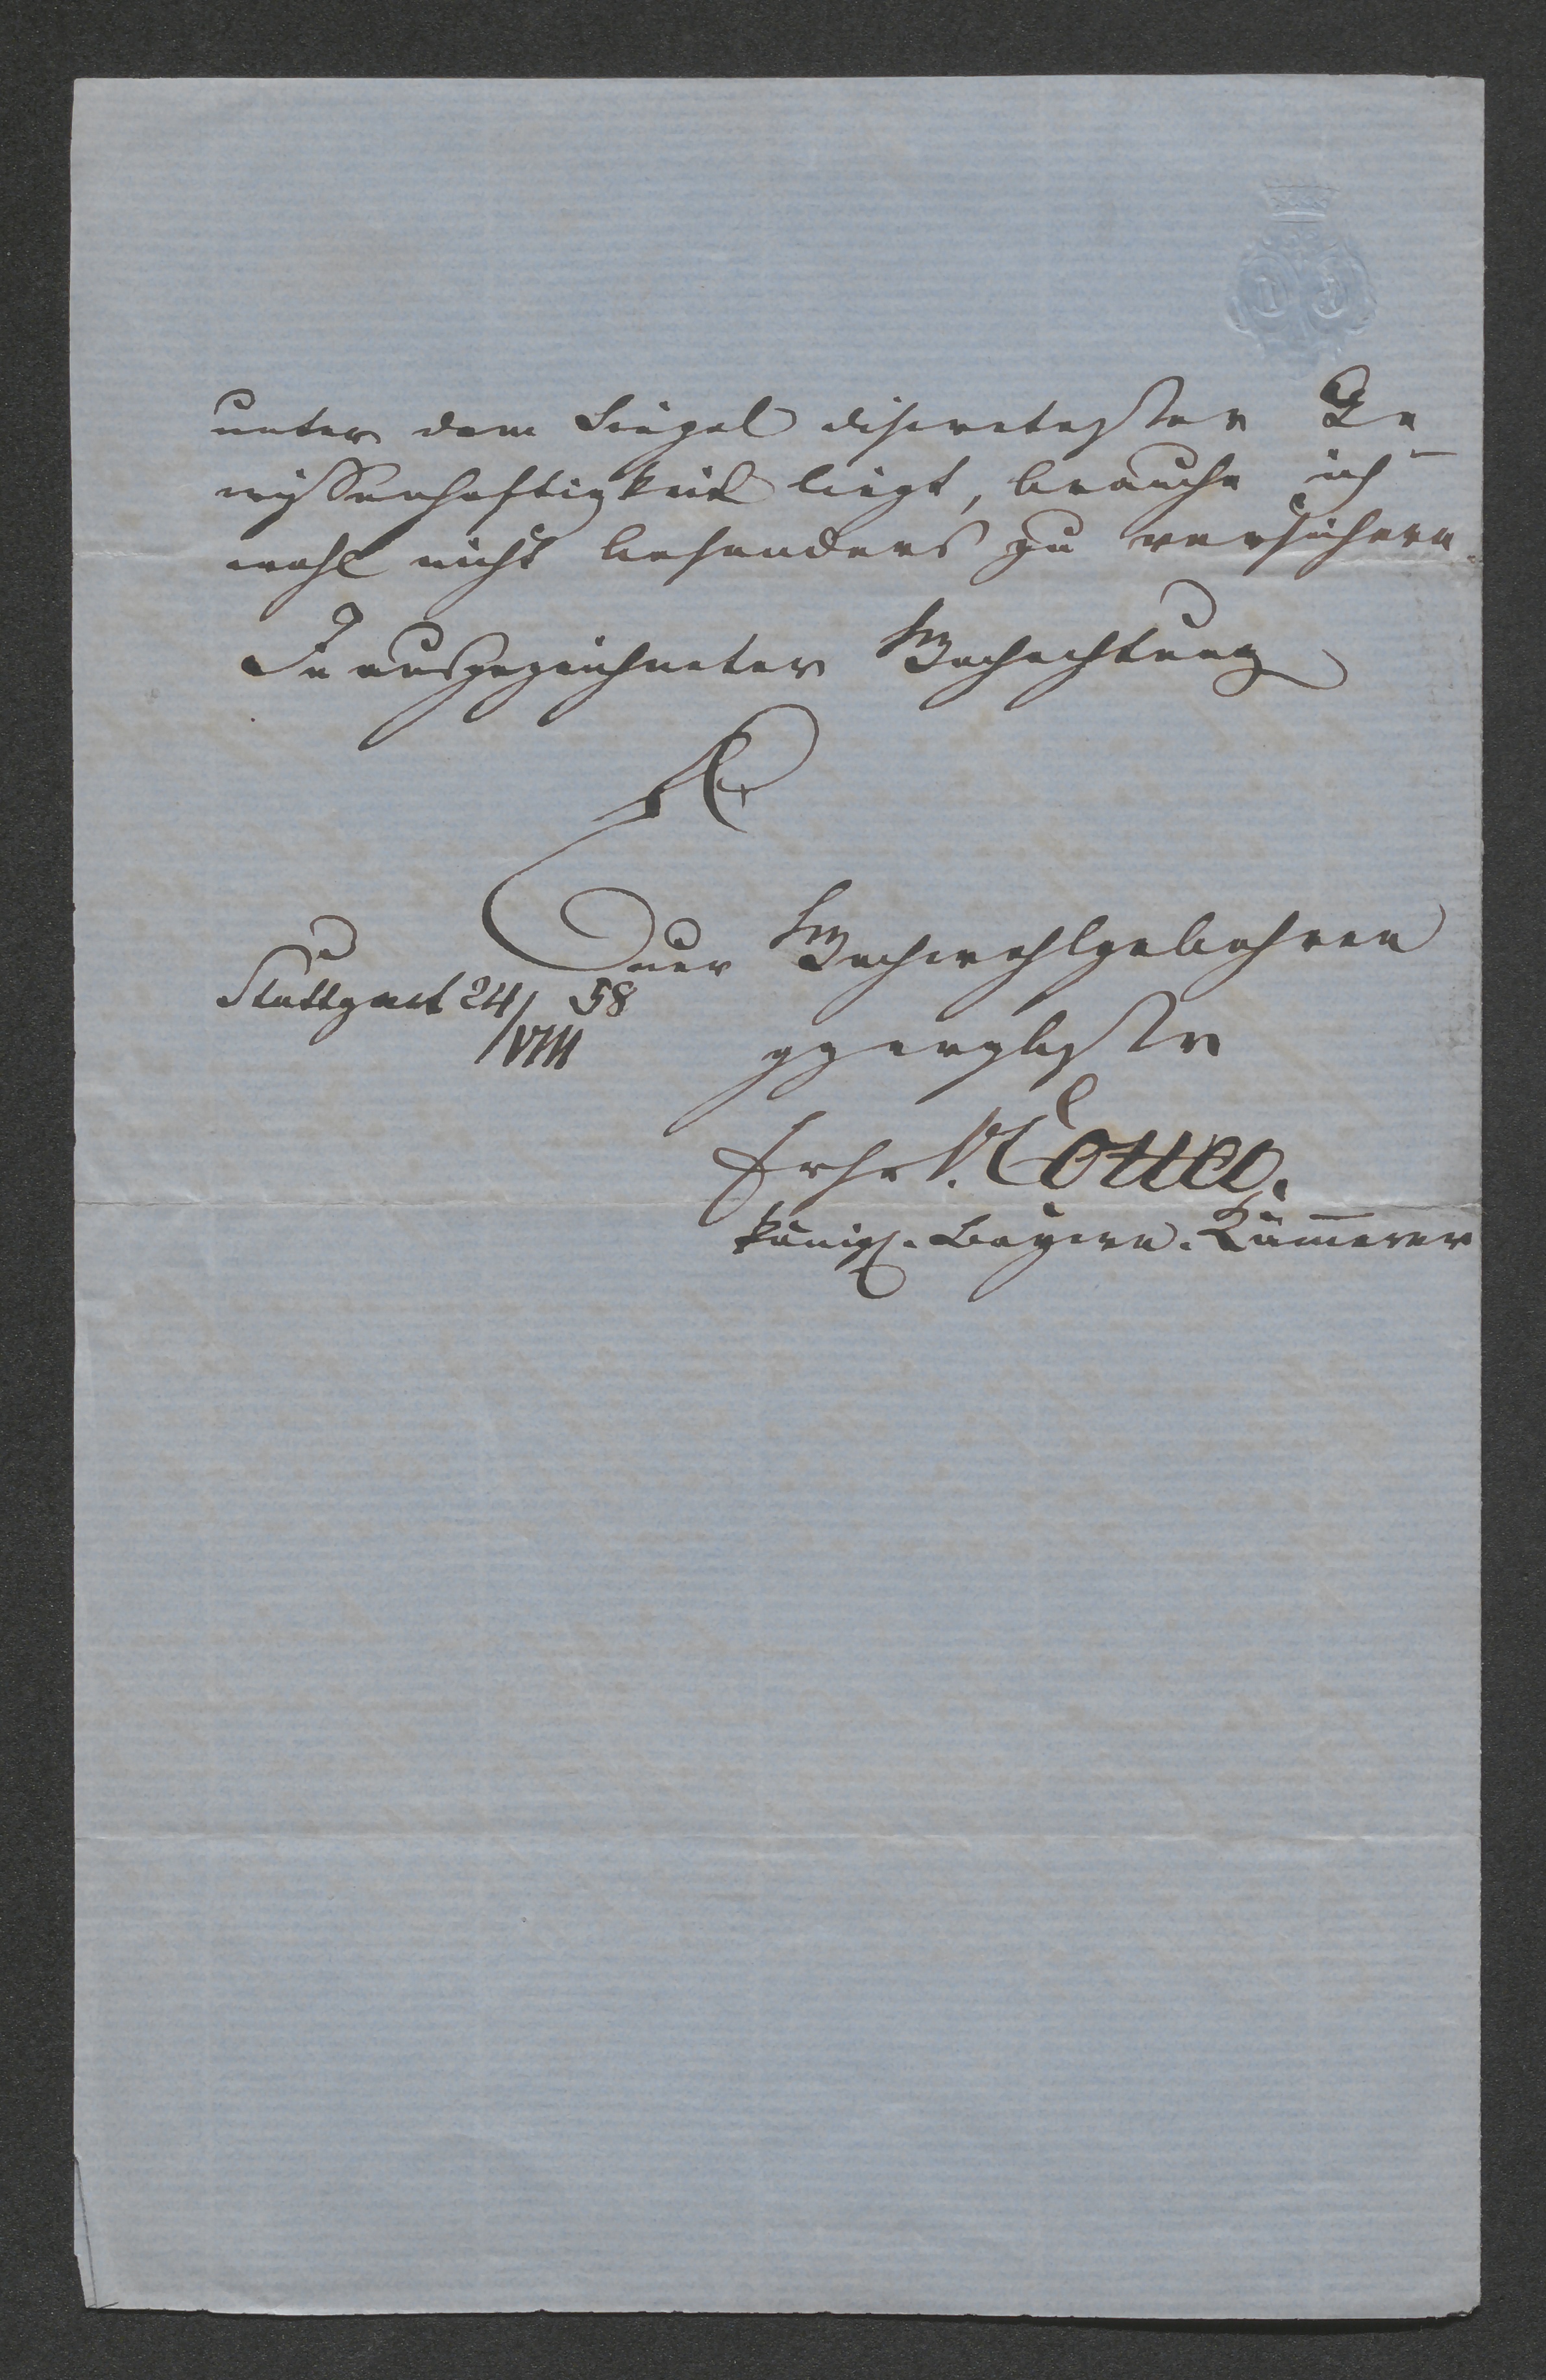 unter dem Siegel discretester Ge-
wissenhaftigkeit liegt, brauche ich
wohl nicht besonders zu versichern.
In ausgezeichneter Hochachtung
Euer Hochwohlgebohren
Stuttgart 24/VIII 58
ggergebster
Frhr v. Cotta.
königl. Bayern. Kämerer